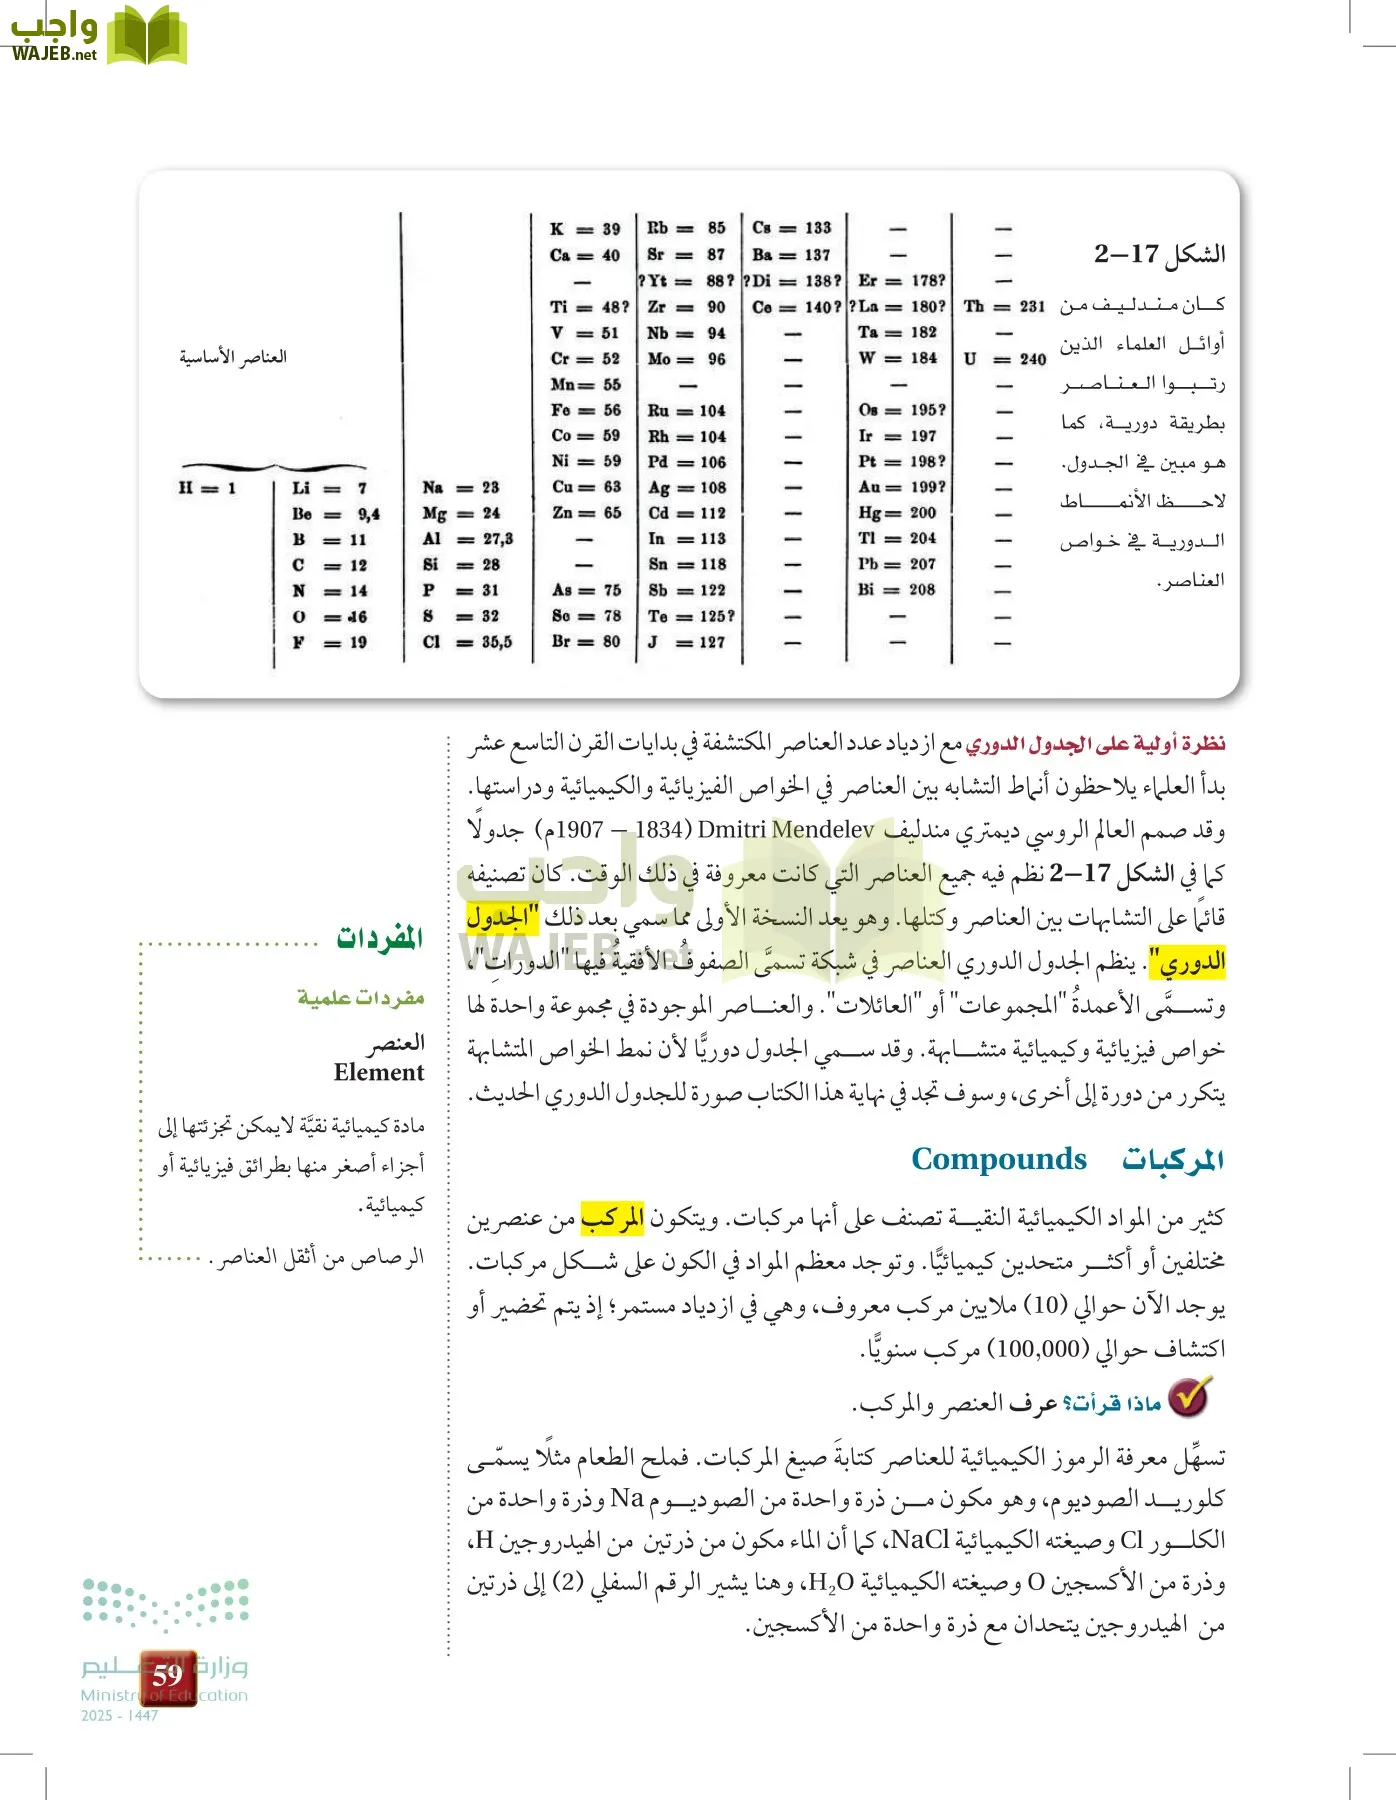 واجب
WAJEB.net
الشكل 17–2
كان مندليف من
أوائل العلماء الذين
رتبوا العناصر
بطريقة دورية، كما
هو مبين في الجدول.
لاحظ الأنماط
الدورية في خواص
العناصر.
K = 39 Rb = 85 Cs = 133 — —
Ca = 40 Sr = 87 Ba = 137 — —
— ?Yt = 88? ?Di = 138? Er = 178? —
Ti = 48? Zr = 90 Ce = 140? ?La = 180? Th = 231
V = 51 Nb = 94 — Ta = 182 —
العناصر الأساسية Cr = 52 Mo = 96 — W = 184 U = 240
Mn = 55 — — — —
Fe = 56 Ru = 104 — Os = 195? —
Co = 59 Rh = 104 — Ir = 197 —
Ni = 59 Pd = 106 — Pt = 198? —
H = 1 Li = 7 Na = 23 Cu = 63 Ag = 108 — Au = 199? —
Be = 9,4 Mg = 24 Zn = 65 Cd = 112 — Hg = 200 —
B = 11 Al = 27,3 — In = 113 — Tl = 204 —
C = 12 Si = 28 — Sn = 118 — Pb = 207 —
N = 14 P = 31 As = 75 Sb = 122 — Bi = 208 —
O = 16 S = 32 Se = 78 Te = 125? — — —
F = 19 Cl = 35,5 Br = 80 J = 127 — — —
نظرة أولية على الجدول الدوري مع ازدياد عدد العناصر المكتشفة في بدايات القرن التاسع عشر
بدأ العلماء يلاحظون أنماط التشابه بين العناصر في الخواص الفيزيائية والكيميائية ودراستها.
وقد صمم العالم الروسي ديمتري مندليف Dmitri Mendelev (1834 – 1907م) جدولًا
كما في الشكل 17–2 نظم فيه جميع العناصر التي كانت معروفة في ذلك الوقت. كان تصنيفه
قائمًا على التشابهات بين العناصر وكتلها. وهو يعد النسخة الأولى مما سمي بعد ذلك "الجدول
الدوري". ينظم الجدول الدوري العناصر في شبكة تسمَّى الصفوفُ الأفقيةُ فيها "الدوراتِ"،
وتسمَّى الأعمدةُ "المجموعات" أو "العائلات". والعناصر الموجودة في مجموعة واحدة لها
خواص فيزيائية وكيميائية متشابهة. وقد سمي الجدول دوريًّا لأن نمط الخواص المتشابهة
يتكرر من دورة إلى أخرى، وسوف تجد في نهاية هذا الكتاب صورة للجدول الدوري الحديث.
واجب
WAJEB.net
المركبات Compounds
كثير من المواد الكيميائية النقية تصنف على أنها مركبات. ويتكون المركب من عنصرين
مختلفين أو أكثر متحدين كيميائيًّا. وتوجد معظم المواد في الكون على شكل مركبات.
يوجد الآن حوالي (10) ملايين مركب معروف، وهي في ازدياد مستمر؛ إذ يتم تحضير أو
اكتشاف حوالي (100,000) مركب سنويًّا.
ماذا قرأت؟ عرف العنصر والمركب.
تسهِّل معرفة الرموز الكيميائية للعناصر كتابةَ صيغ المركبات. فملح الطعام مثلًا يسمّى
كلوريد الصوديوم، وهو مكون من ذرة واحدة من الصوديوم Na وذرة واحدة من
الكلور Cl وصيغته الكيميائية NaCl، كما أن الماء مكون من ذرتين من الهيدروجين H،
وذرة من الأكسجين O وصيغته الكيميائية H₂O، وهنا يشير الرقم السفلي (2) إلى ذرتين
من الهيدروجين يتحدان مع ذرة واحدة من الأكسجين.
المفردات
مفردات علمية
العنصر
Element
مادة كيميائية نقيَّة لايمكن تجزئتها إلى
أجزاء أصغر منها بطرائق فيزيائية أو
كيميائية.
الرصاص من أثقل العناصر.
وزارة التعليم
Ministry of Education
2025 - 1447
59